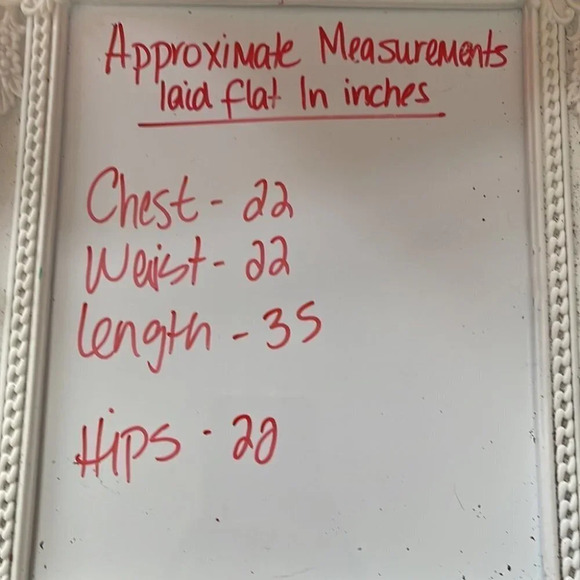 Approximate Measurements
laid flat In inches
Chest - 22
Waist - 22
Length - 35
Hips -